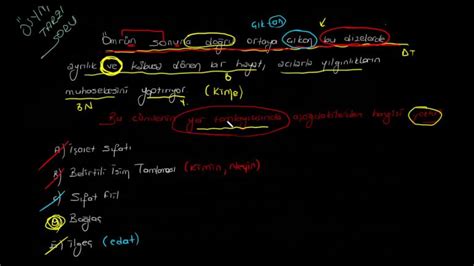 ÖSYM TARZI SORU
Çık-an
Ömrün sonuna doğru ortaya çıkan bu dizelerde
DT
ayrılık ve kâbusa dönen bir hayat, acılarla yılgınlıkların
Ö
muhasebesini yaptırıyor (kime)
BN Y.
Bu cümlenin yer tamlayıcısında aşağıdakilerden hangisi yoktur
A) İşaret Sıfatı
B) Belirtili İsim Tamlaması (kimin, neyin)
C) Sıfat fiil
D) Bağlaç
E) İlgeç (edat)